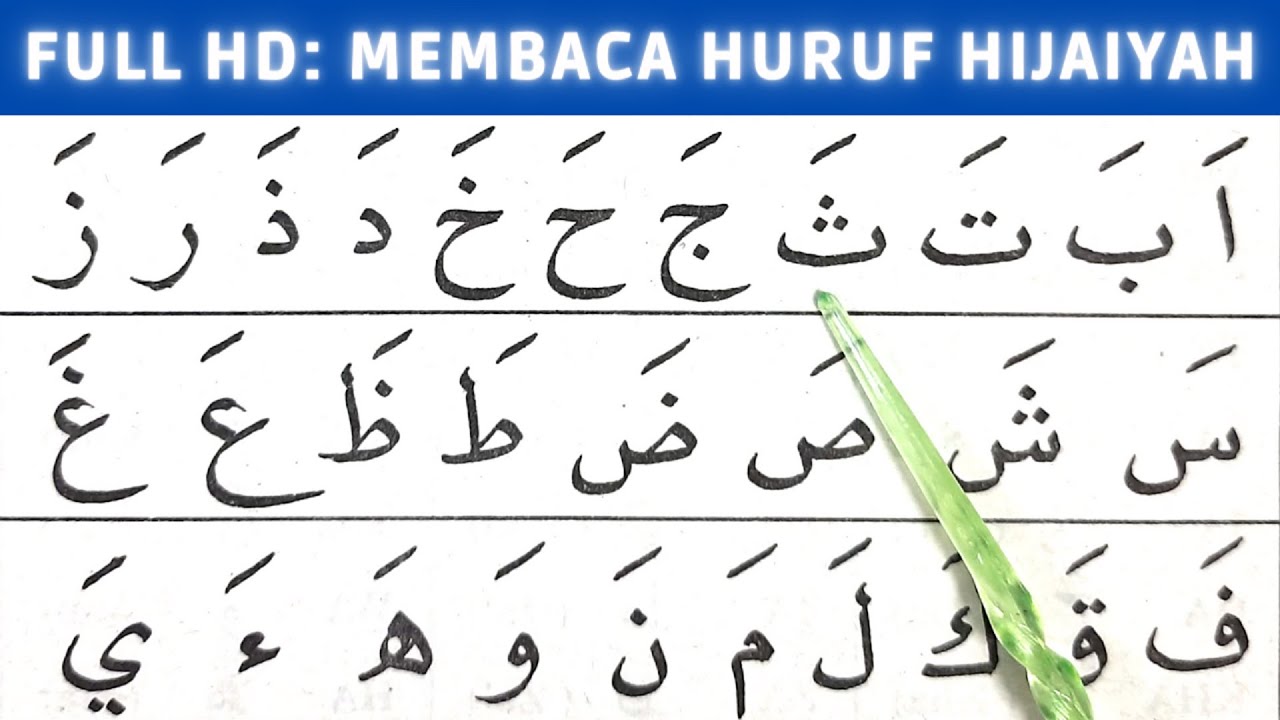 FULL HD: MEMBACA HURUF HIJAIYAH
اَ بَ تَ ثَ جَ حَ خَ دَ ذَ رَ زَ
سَ شَ صَ ضَ طَ ظَ عَ غَ
فَ قَ كَ لَ مَ نَ وَ هَ ءَ يَ